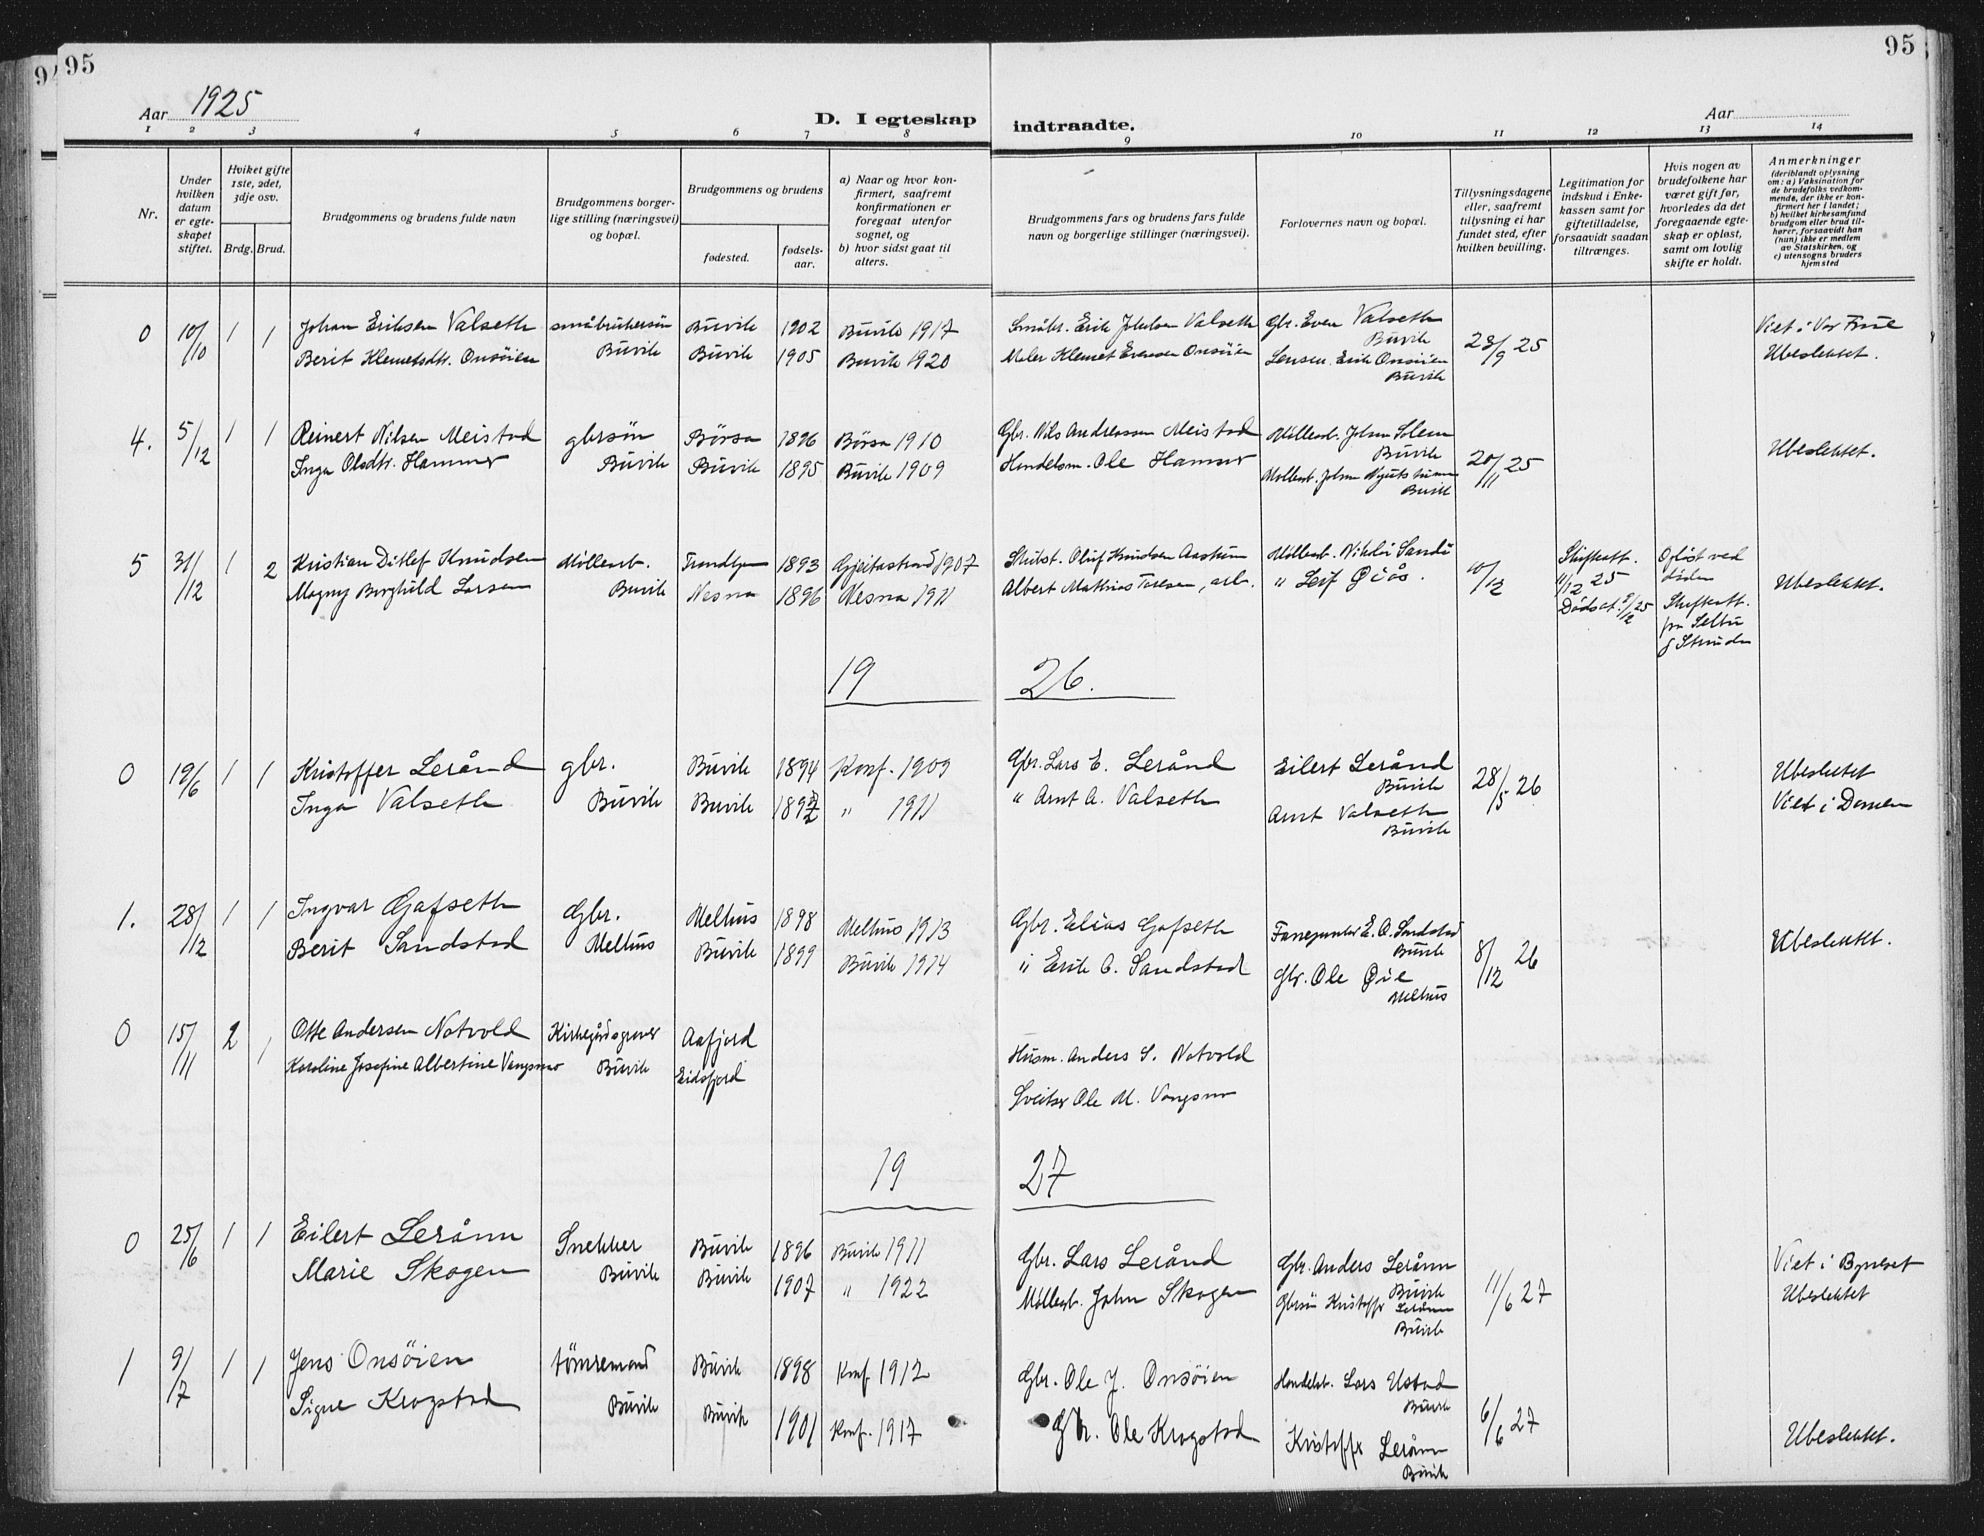 95
95
Aar 1925
D. I egteskap
indtraadte.
Aar
1 2 3 4 5 6 7 8 9 10 11 12 13 14
Nr.
Under hvilken datum er egteskapet stiftet.
Hvilket gifte 1ste, 2det, 3dje osv.
Brdg. Brud.
Brudgommens og brudens fulde navn
Brudgommens borgerlige stilling (næringsvei) og bopæl.
Brudgommens og brudens
fødested.
fødselsaar.
a) Naar og hvor konfirmert, saafremt konfirmationen er foregaat utenfor sognet, og
b) hvor sidst gaat til alters.
Brudgommens fars og brudens fars fulde navn og borgerlige stillinger (næringsvei).
Forlovernes navn og bopæl.
Tillysningsdagene eller, saafremt tillysning ei har fundet sted, efter hvilken bevilling.
Legitimation for indskud i Enkekassen samt for giftetilladelse, forsaavidt saadan tiltrænges.
Hvis nogen av brudefolkene har været gift før, hvorledes da det foregaaende egteskap er opløst, samt om lovlig skifte er holdt.
Anmerkninger (deriblandt oplysning om: a) Vaksination for de brudefolks vedkommende, der ikke er konfirmert her i landet; b) hvilket kirkesamfund brudgom eller brud tilhører, forsaavidt han (hun) ikke er medlem av Statskirken, og c) utensogns bruders hjemsted
0 10/10 1 1 Johan Eriksen Valseth småbrukersøn Buvik 1902 Buvik 1917 Småbr. Erik Johnsen Valseth Gbr. Even Valseth Viet i Vor Frue
Buvik
Berit Klemetsdtr. Onsøien Buvik Buvik 1905 Buvik 1920 Maler Klemet Evensen Onsøien Erik Onsøien 28/9 25 Ubeslektet.
Buvik
4. 5/12 1 1 Reinert Nilsen Meistad gbrsøn Børsa 1896 Børsa 1910 Gbr. Nils Andreassen Meistad Möllearb. Johan Solem
Buvik
Inga Olsdtr. Hammer Buvik Buvik 1895 Buvik 1909 Handelsm. Ole Hammer Möllearb. Johan 20/11 25 Ubeslektet.
Buvik
5 31/12 1 2 Kristian Ditlef Knudsen Möllearb. Trondhjem 1893 Gjeitastrand 1907 Oluf Knudsen Aastrøm Möllearb. Nikolai Sandø 10/12 Skifteatt. 11/12 25 Dødsat. 9/12 25 Opløst ved døden Skifteatt. fra Selbu & Strinden
Magny Borghild Larsen Buvik Nesna 1896 Nesna 1911 Albert Mathias Toresen, arb. " Leif Øiås. Ubeslektet.
19 26.
0 19/6 1 1 Kristoffer Lerånd gbr. Buvik 1894 Konf. 1909 Gbr. Lars E. Lerånd Eilert Lerånd 28/5 26 Ubeslektet
Buvik
Inga Valseth Buvik Buvik 1897 " 1911 " Arnt A. Valseth Arnt Valseth Viet i Domen
Buvik
1. 28/12 1 1 Ingvar Gafseth Gbr. Melhus 1898 Melhus 1913 Gbr. Elias Gafseth E. A. Sandstad
Buvik
Berit Sandstad Melhus Buvik 1899 Buvik 1914 " Erik A. Sandstad Gbr. Ole Øie 8/12 26 Ubeslektet.
Melhus
0 15/11 2 1 Otte Andersen Notvold Kirkegårdsgraver Aafjord Husm. Anders S. Notvold
Karoline Josefine Albertine Vangsmo Buvik Eidsfjord Sveitser Ole M. Vangsmo
19 27
0 25/6 1 1 Eilert Lerånn Snekker Buvik 1896 Buvik 1911 Gbr. Lars Lerånd Gbr. Anders Lerånn Viet i Bynesset
Buvik
Marie Skogen Buvik Buvik 1907 " 1922 Möllearb. John Skogen Gbrsøn Kristoffer Lerånn 11/6 27 Ubeslektet
Buvik
1 9/7 1 1 Jens Onsöien tömremand Buvik 1898 Konf 1912 Gbr. Ole J. Onsöien Handelsb. Lars Ustad
Buvik
Signe Krogstad Buvik Buvik 1901 Konf. 1917 Gbr. Ole Krogstad Kristoffer Lerånn 6/6 27 Ubeslektet.
Buvik